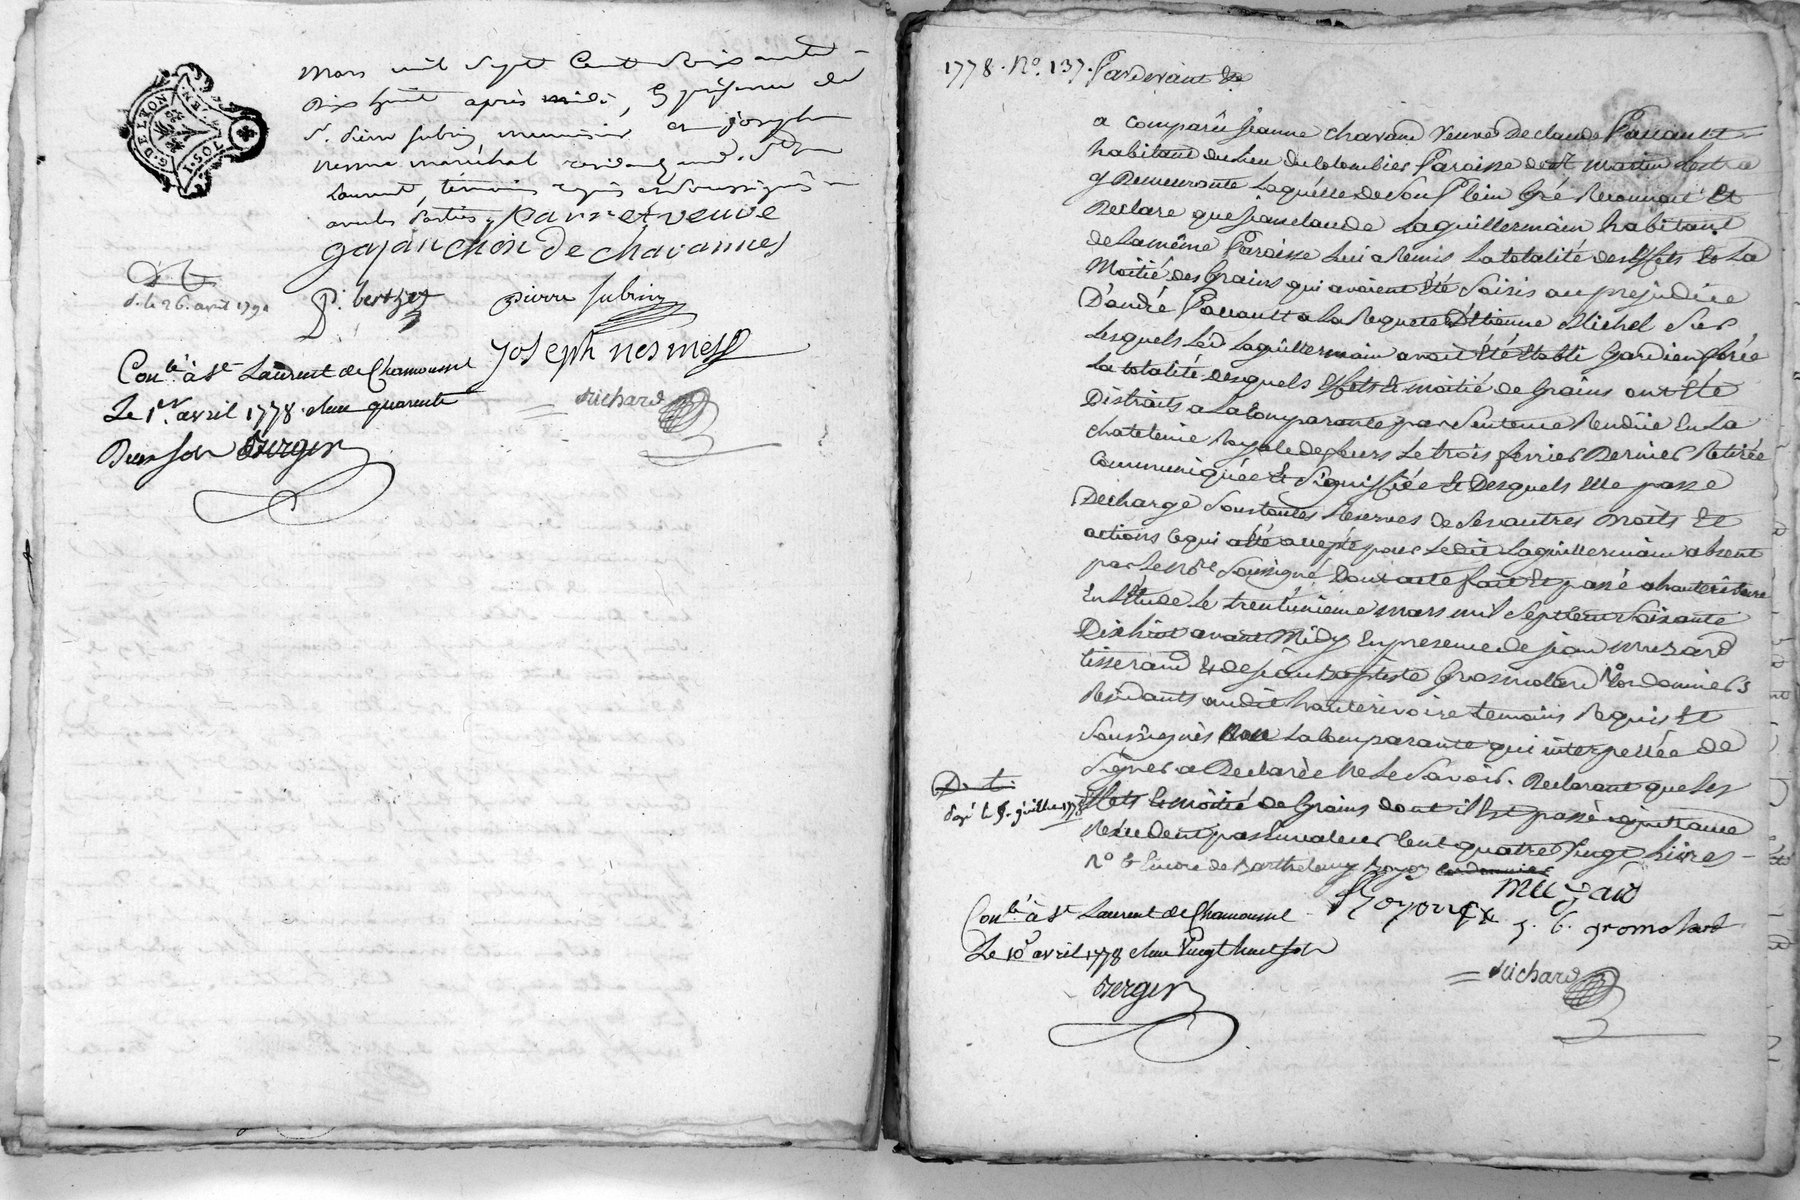 G. DE LYON
1 SOL. 4 DEN.
mars mil Sept Cent Soixante
Dix huit après midi, En présence de
Sr. pierre Subrin et joseph
nesme maréchal
Laurent, témoins requis et Soussignés
avec les parties, parret veuve
gajan chion de chavannes
D. t.
d. le 26. avril 1791
P. berthet
pierre subrin
joseph nesmes
Conlé à St Laurent de Chamousset
Le 1er. avril 1778. Reçu quarante
Deux sols Berger
Richard
1778. No. 137. Pardevant &a
a comparû jeanne chavand veuve de claude Passault
habitant du lieu du Colombier Paroisse de St martin Lestra
y Demeurante Laquelle de Son Plein Gré Reconnoit Et
Declare que jean claude Laguillermain habitant
de La même Paroisse Lui a Remis La totalité des Effets Et La
Moitié des Grains qui avoient Eté Saisis au prejudice
D'andré Passault a La Requete d'Etienne Michel Sur
Lesquels Led. Laguillermain avoit Eté Etabli Gardien forée
La totalité desquels Effets Et moitié de Grains ont Eté
Distraits a La Comparante par Sentence Rendûe En La
chatelenie Royale de feurs Le trois fevrier Dernier Retirée
Communiquée Et Signiffiée Et Desquels Elle passe
Décharge Sous toutes Reserves de Ses autres Droits Et
actions Ce qui a Eté accepté pour Ledit Laguillermain absent
par Le Nore Soussigné Dont acte fait Et passé a hauterivoire
En L'Etude Le trentunieme mars mil Sept Cent Soixante
Dix huit avant Midy En presence de jean muzard
tisserand Et de jean Baptiste Gromollard No Cordonniers
Residants audit hauterivoire temoins Requis Et
Soussignés Non La Comparante qui interpellée de
Signer a Déclarée Ne Le Savoir. Declarant que Les
Effets Et moitié de Grains dont il Est passé quittance
N'excedent pas En valeur Cent quatre Vingt Livres
D. t.
payé le 5. juillet 1778
No & Encore de Barthelemy Royon cordonnier
muzard
Royon
j. b. gromolard
Conlé à St Laurent de Chamousset
Le 10 avril 1778 Reçu Vingt huit sols
Berger
Richard